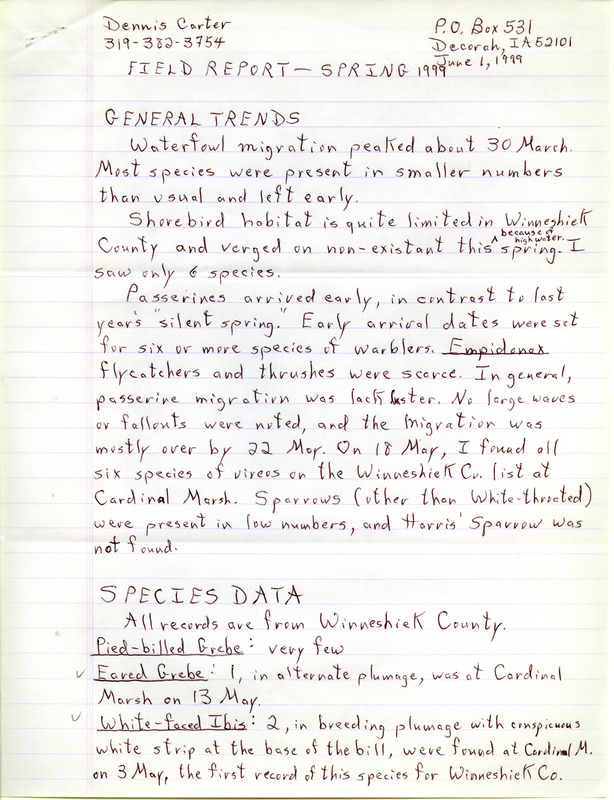 Dennis Carter
319-382-3754
P.O. Box 531
Decorah, IA 52101
June 1, 1999
FIELD REPORT — SPRING 1999
GENERAL TRENDS
Waterfowl migration peaked about 30 March.
Most species were present in smaller numbers
than usual and left early.
Shorebird habitat is quite limited in Winneshiek
because of
high water.
County and verged on non-existant this ^ spring. I
saw only 6 species.
Passerines arrived early, in contrast to last
year's "silent spring." Early arrival dates were set
for six or more species of warblers. Empidonax
flycatchers and thrushes were scarce. In general,
passerine migration was lack luster. No large waves
or fallouts were noted, and the migration was
mostly over by 22 May. On 18 May, I found all
six species of vireos on the Winneshiek Co. list at
Cardinal Marsh. Sparrows (other than White-throated)
were present in low numbers, and Harris' Sparrow was
not found.
SPECIES DATA
All records are from Winneshiek County.
Pied-billed Grebe: very few
✓ Eared Grebe: 1, in alternate plumage, was at Cardinal
Marsh on 13 May.
✓ White-faced Ibis: 2, in breeding plumage with conspicuous
white strip at the base of the bill, were found at Cardinal M.
on 3 May, the first record of this species for Winneshiek Co.